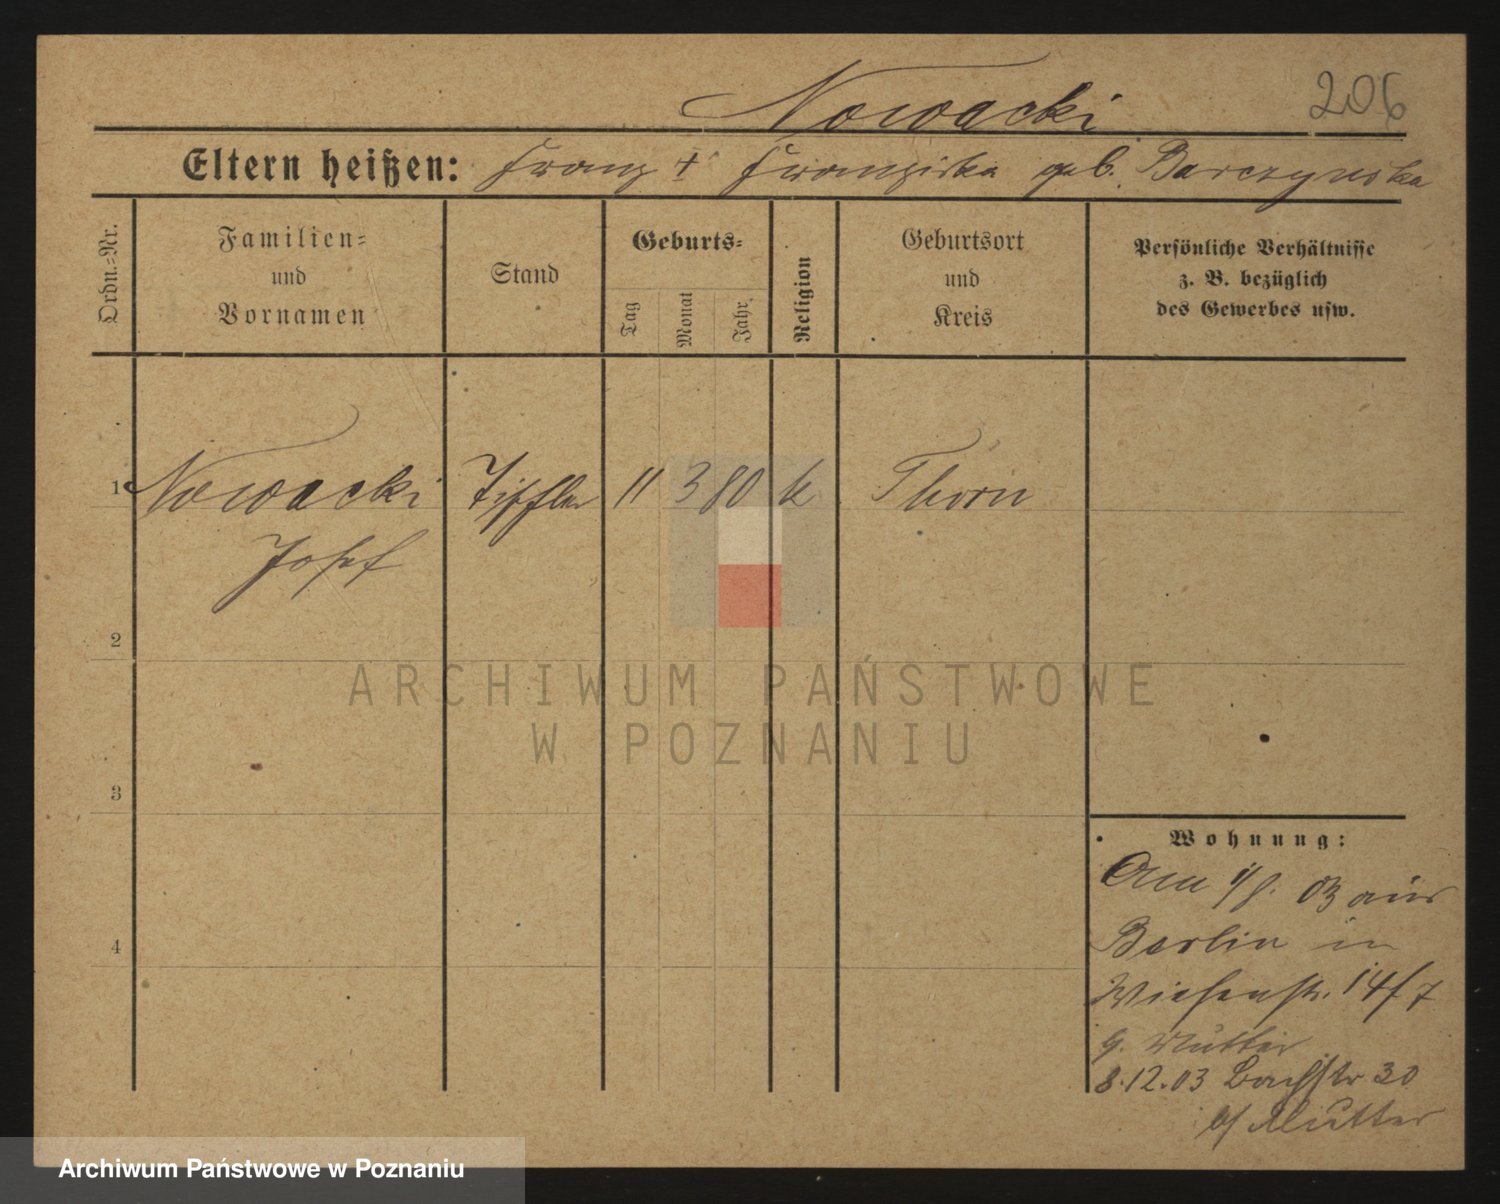 Nowacki
206
Eltern heißen: Franz + Franziska geb. Barczynska
Ordn.=Nr.
Familien=
und
Vornamen
Stand
Geburts=
Tag
Monat
Jahr
Religion
Geburtsort
und
Kreis
Persönliche Verhältnisse
z. B. bezüglich
des Gewerbes usw.
1 Nowacki Tischler 11 3 80 k Thorn
Josef
2
3
4
ARCHIWUM PAŃSTWOWE
W POZNANIU
Wohnung:
Am 1/8. 03 aus
Berlin in
Wiesenstr. 14/7
b. Mutter
8.12.03 Bachstr 30
b/ Mutter
Archiwum Państwowe w Poznaniu